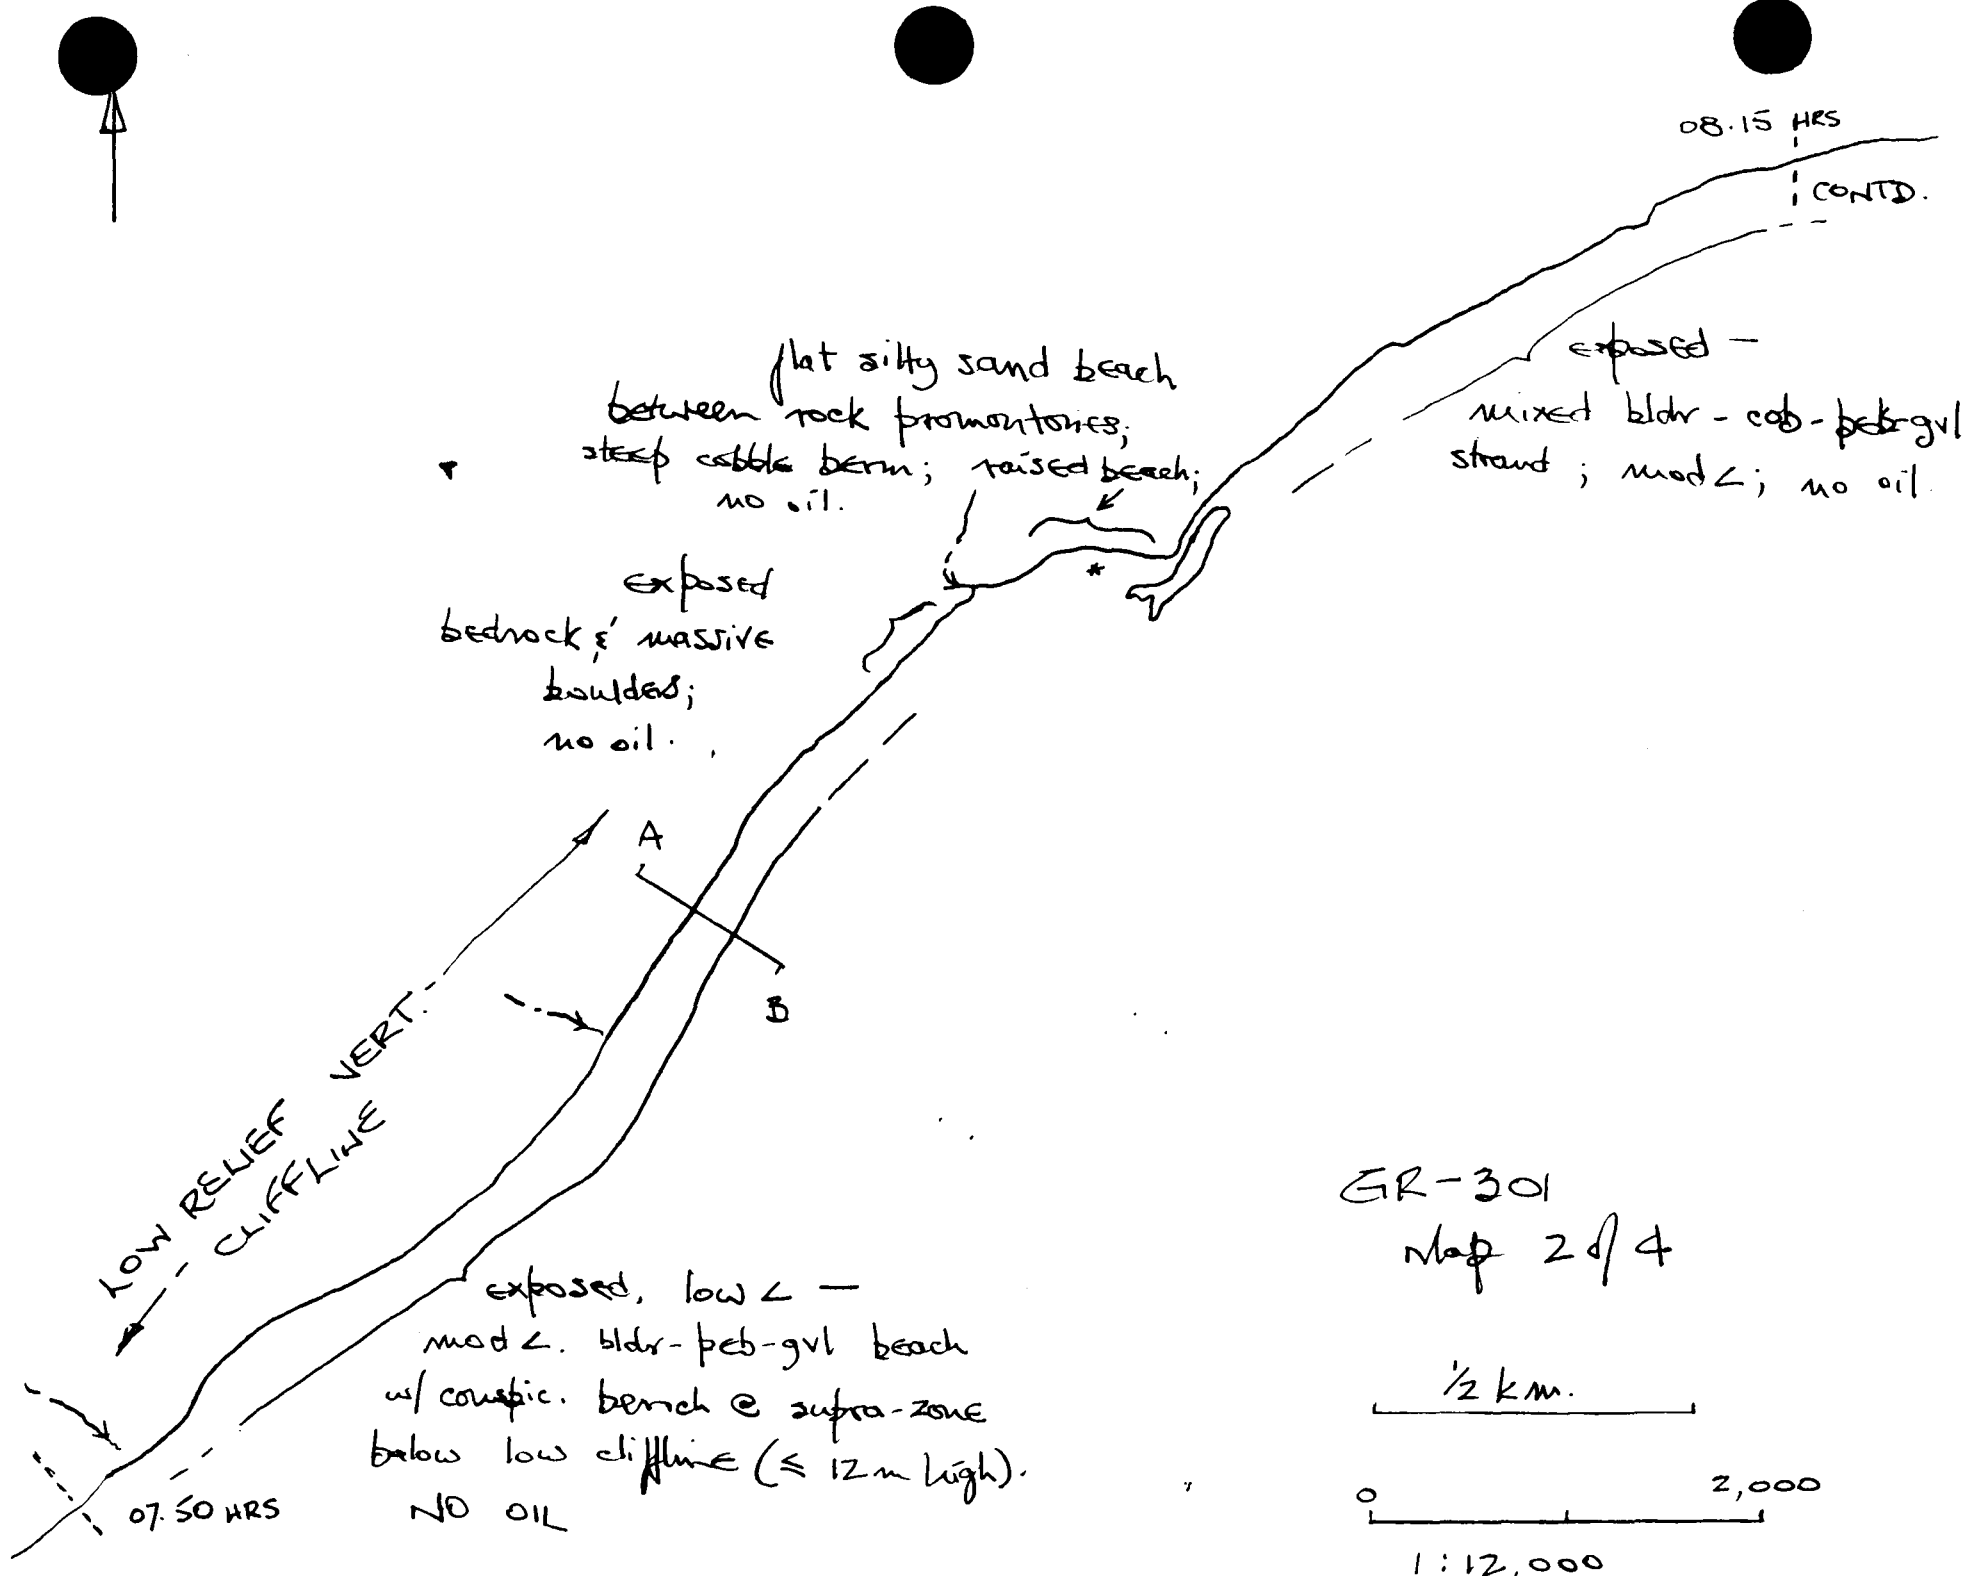 08.15 HRS
CONTD.
flat silty sand beach
between rock promontories;
steep cobble berm; raised beach;
no oil.
exposed -
mixed bldr - cob - peb-gvl
strand; mod <; no oil
*
exposed
bedrock & massive
boulders;
no oil.
A
B
LOW RELIEF VERT.
CLIFFLINE
exposed, low < -
mod <. bldr-peb-gvl beach
w/ conspic. bench @ supra-zone
below low cliffline (≤ 12m high).
NO OIL
07.50 HRS
GR-301
Map 2 of 4
1/2 km.
0 2,000
1:12,000